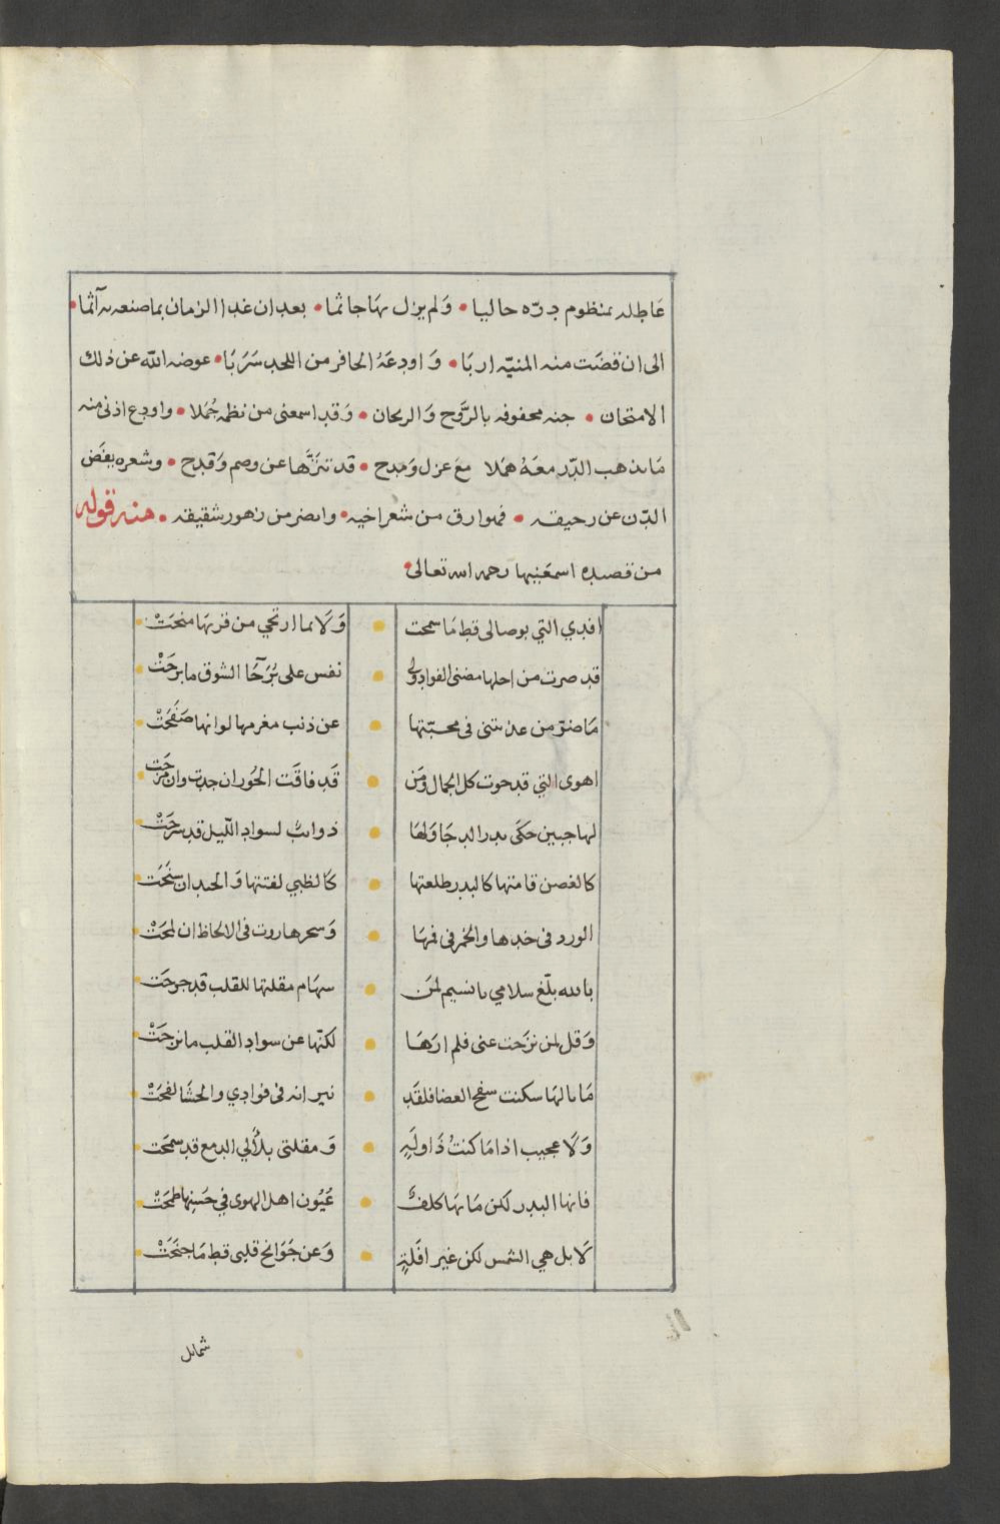 عاطله بمنظوم درّه حاليا • وَلم يزل بهَا جاثما • بعد ان غدا الزمان بما صنعه به آثما •
الى ان قضَت منه المنيّه اربَا • وَ اودعَهُ الحافر من اللحد سَرَبَا • عوضه الله عن ذلك
الامتحان • جنه محفوفه بالرَّوح وَالريحان • وَقد اسمعنى من نظمه جُملا • واودع اذنى منه
مَا يذهب الدّر معَهُ هَمَلا مَع غزل وَمدح • قد تنزَّها عن وصم وَقدح • وشعره يفضَ
الدّن عن رحيقه • فهو ارق من شعر اخيه • وانضر من زهور شقيقه • منه قوله
من قصيده اسمعَنيها رحمه الله تعالى •
افدي التي بوصالى قط مَا سمحت • وَلَا بما ارتجي من قربهَا منحَتْ •
قد صرت من اجلها مضنى الفواد ولى • نفس على بُرَحَآ الشوق ما برحَتْ •
مَا ضرّ من عذبتنى فى محبّتها • عن ذنب مغرمها لو انها صَفَحَتْ •
اهوى التي قد حوت كل الجمال وَمَن • قَد فاقَت الحُور ان جدت وان مزحَت •
لها جبين حكَى بدر الدجَا وَلهَا • ذوائبٌ لسواد اللّيل قد سرحَتْ •
كالغصن قامتها كالبدر طلعتها • كَالظبي لفتتها وَالجيد ان سنَحَت •
الورد فى خدها والخمر فى فمهَا • وَسحر هاروت فى الالحاظ ان لمحَتْ •
بالله بلّغ سلامي يا نسيم لمَن • سهَام مقلتها للقلب قد جرحَت •
وَقل لمن نزحَت عنى فلم ارَهَا • لكنّها عن سواد القلب ما نزحَتْ •
مَا بالهَا سكنت سفح الغضا فلقَد • نيرانه فى فوادي والحشَا لفحَتْ •
وَلَا عجيب اذا مَا كنتُ ذَا وَلَهٍ • وَمقلتى بلآلي الدمع قد سمحَت •
فانها البدر لكن مَا بهَا كلفٌ • عُيُون اهل الهوى في حُسنِها طمحَتْ •
لَا بل هي الشمس لكن غير افَلَةٍ • وَعن جَوَانح قلبى قط مَا جنَحَتْ •
شمايل